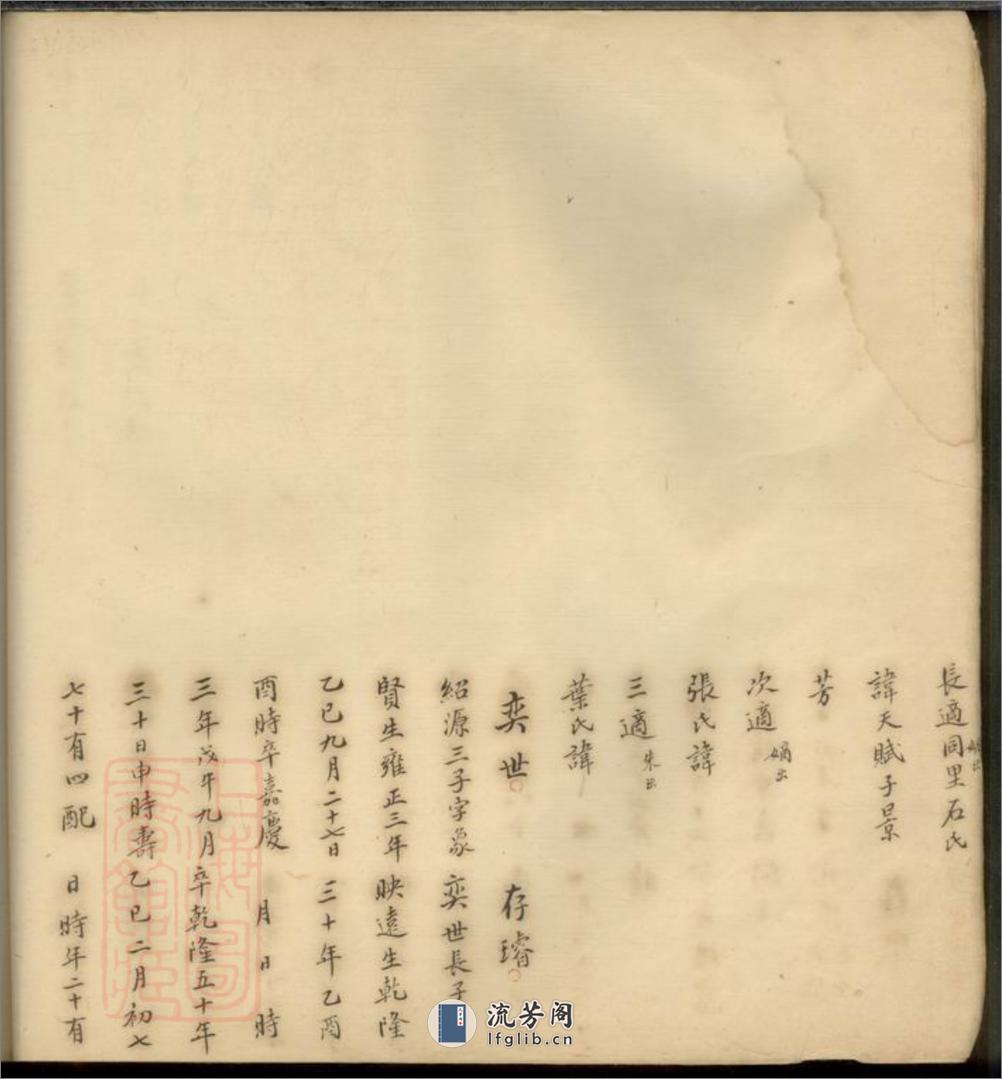 長適同里石氏
嫡出
諱天賦子景
芳
次適
嫡出
張氏諱
三適
朱出
葉氏諱
奕世 存璿
紹源三子字象 奕世長子
賢生雍正三年 映遠生乾隆
乙巳九月二十七日 三十年乙酉
酉時卒嘉慶 月 日 時
三年戊午九月 卒乾隆五十年
三十日申時壽 乙巳二月初七
七十有四配 日時年二十有
上海圖書館藏
流芳阁
lfglib.cn